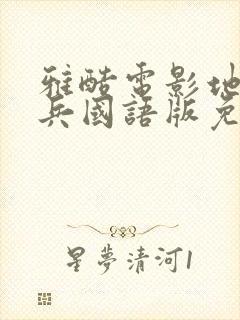 雅酷電影地
兵國語版免
星夢清河1